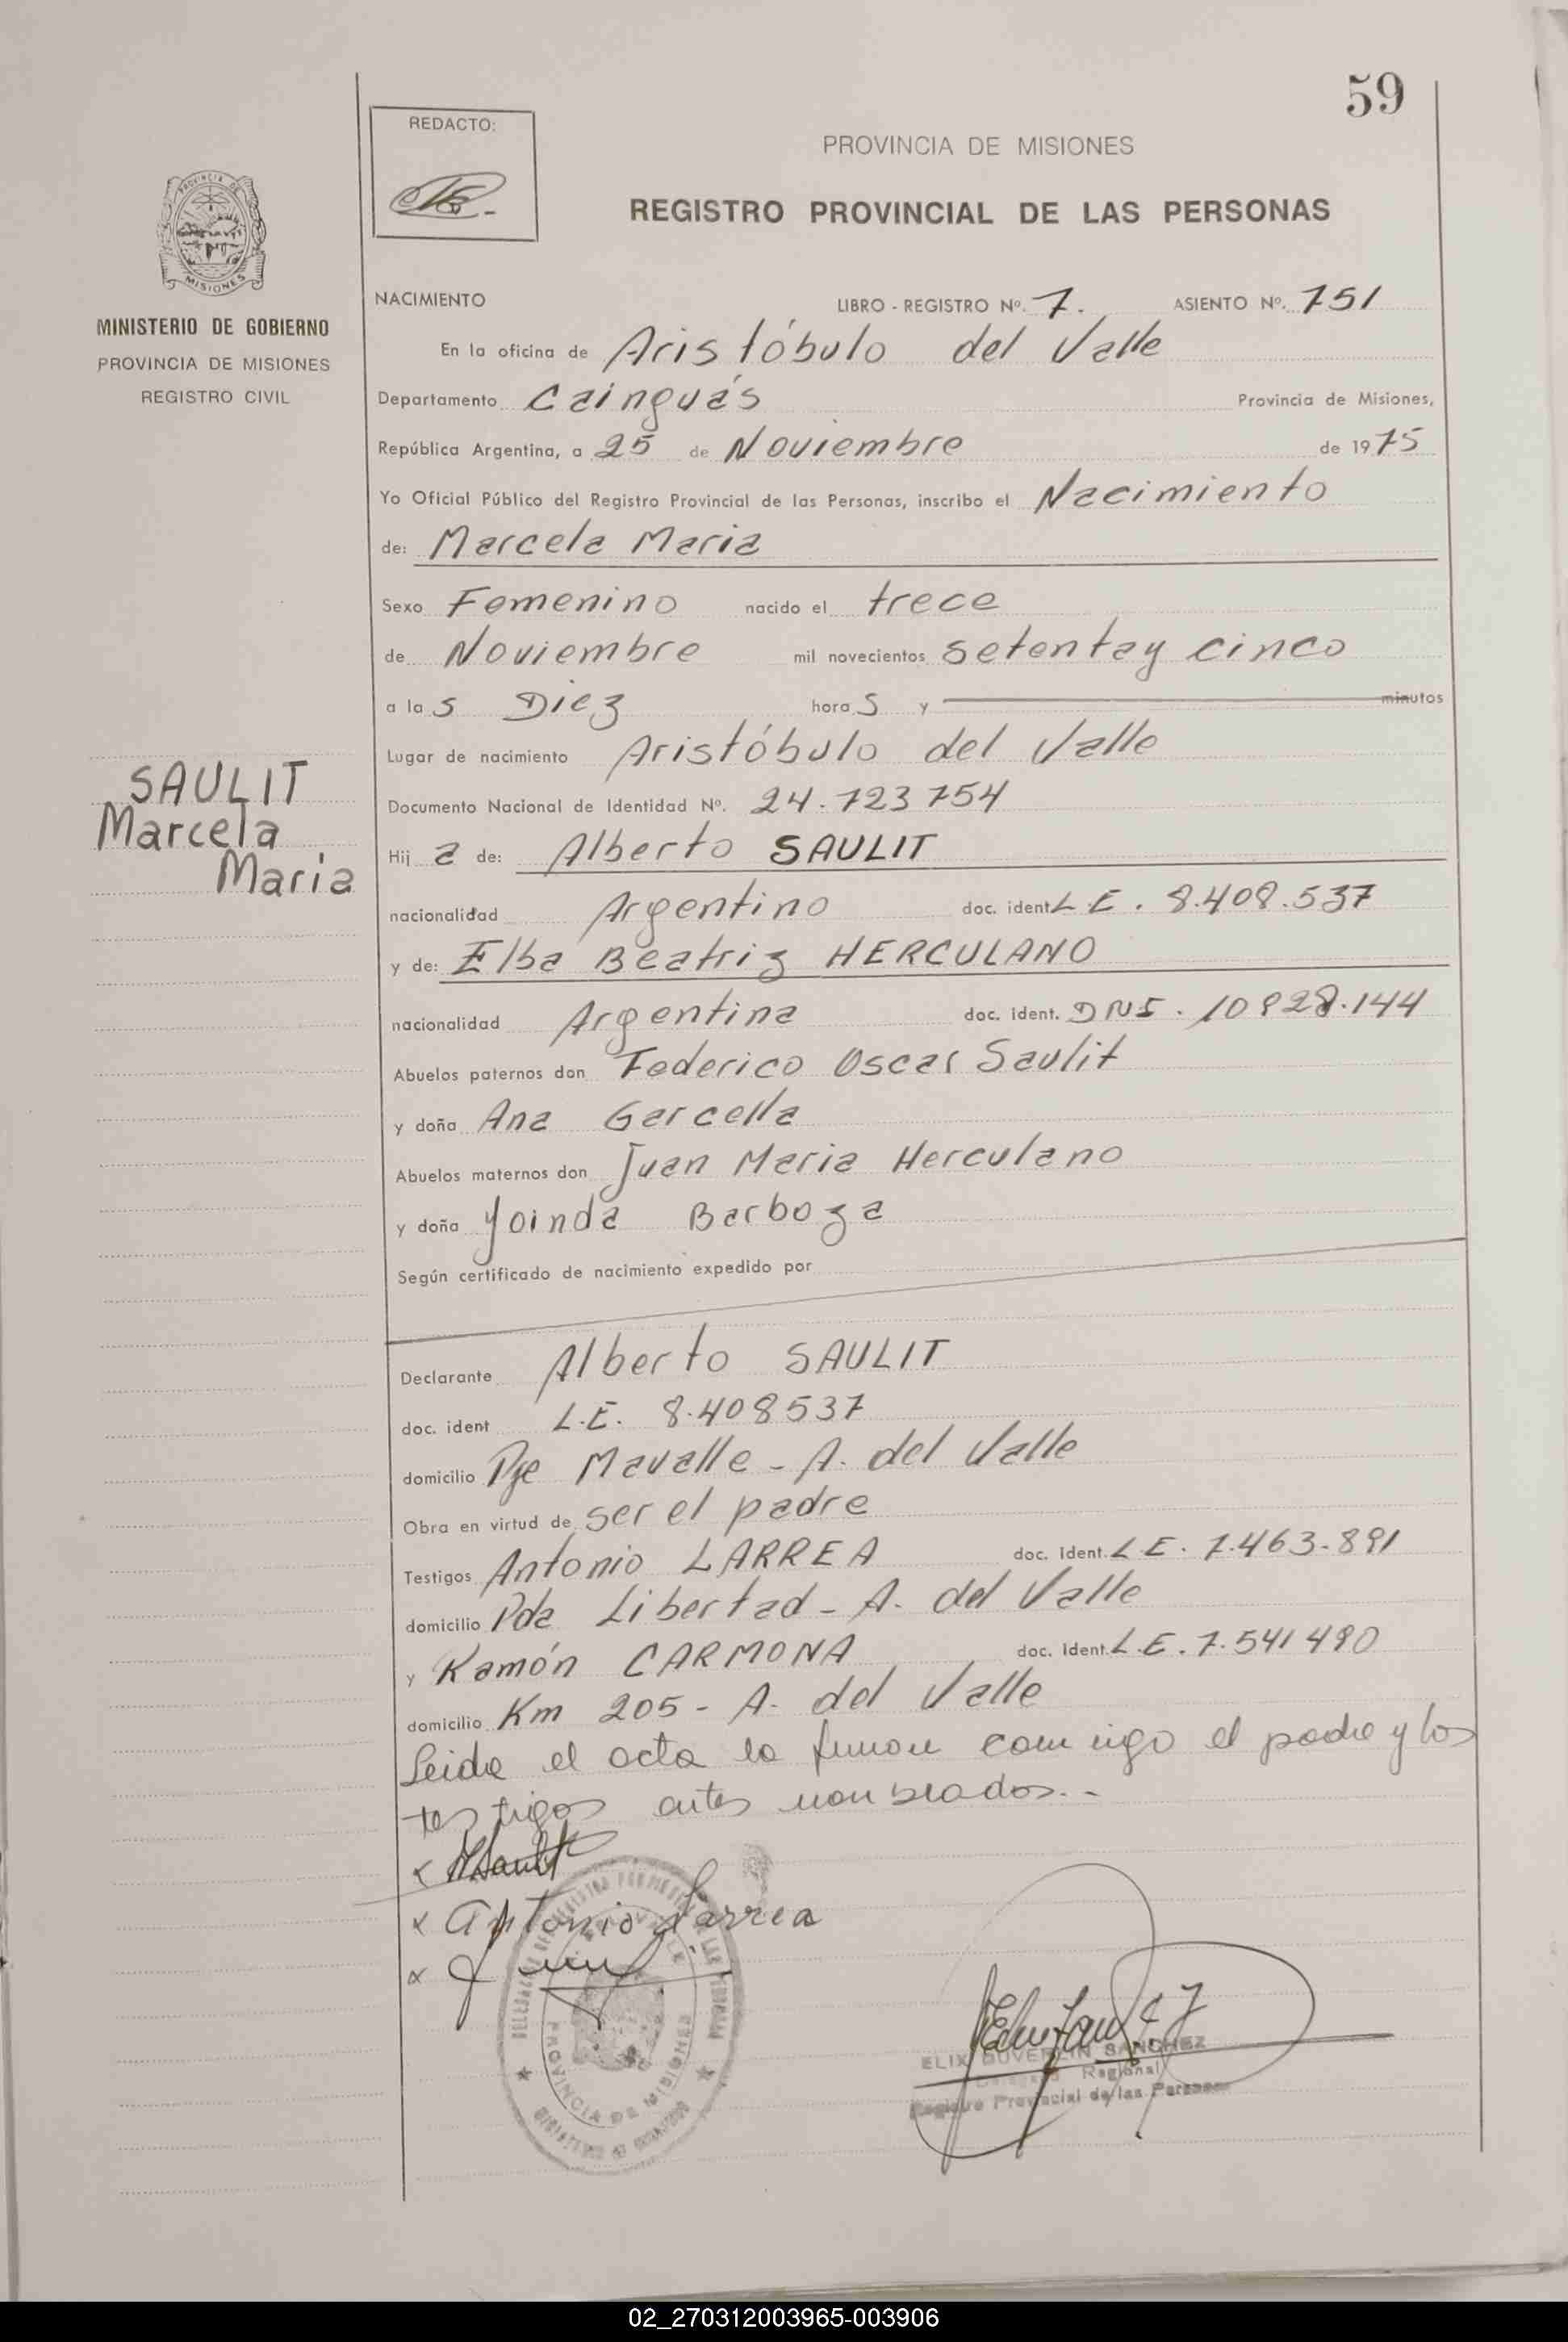 59
REDACTO:
PROVINCIA DE MISIONES
REGISTRO PROVINCIAL DE LAS PERSONAS
PROVINCIA DE
MISIONES
MINISTERIO DE GOBIERNO
PROVINCIA DE MISIONES
REGISTRO CIVIL
NACIMIENTO LIBRO - REGISTRO Nº. 7. ASIENTO Nº. 751
En la oficina de Aristóbulo del Valle
Departamento Cainguás Provincia de Misiones,
República Argentina, a 25 de Noviembre de 1975
Yo Oficial Público del Registro Provincial de las Personas, inscribo el Nacimiento
de: Marcela Maria
Sexo Femenino nacido el trece
de Noviembre mil novecientos setentay cinco
a las Diez horas y minutos
Lugar de nacimiento Aristóbulo del Valle
SAULIT
Marcela
Maria
Documento Nacional de Identidad Nº. 24.723754
Hij a de: Alberto SAULIT
nacionalidad Argentino doc. ident L.E. 8.408.537
y de: Elba Beatriz HERCULANO
nacionalidad Argentina doc. ident. DNI. 10928.144
Abuelos paternos don Federico Oscar Saulit
y doña Ana Garcella
Abuelos maternos don Juan Maria Herculano
y doña Yoinda Barboza
Según certificado de nacimiento expedido por
Declarante Alberto SAULIT
doc. ident L.E. 8.408537
domicilio Pje Mavalle - A. del Valle
Obra en virtud de ser el padre
Testigos Antonio LARREA doc. Ident. L.E. 7.463-891
domicilio Pda Libertad - A. del Valle
y Ramón CARMONA doc. Ident. L.E. 7.541490
domicilio Km 205 - A. del Valle
Leida el acta la firman conmigo el padre y los
testigos antes nombrados.-
x Saulit
x Antonio Larrea
x
PROVINCIA DE MISIONES
MINISTERIO DE GOBIERNO
ELIX DUVERLIN SANCHEZ
Regional
Registro Provincial de las Personas
02_270312003965-003906